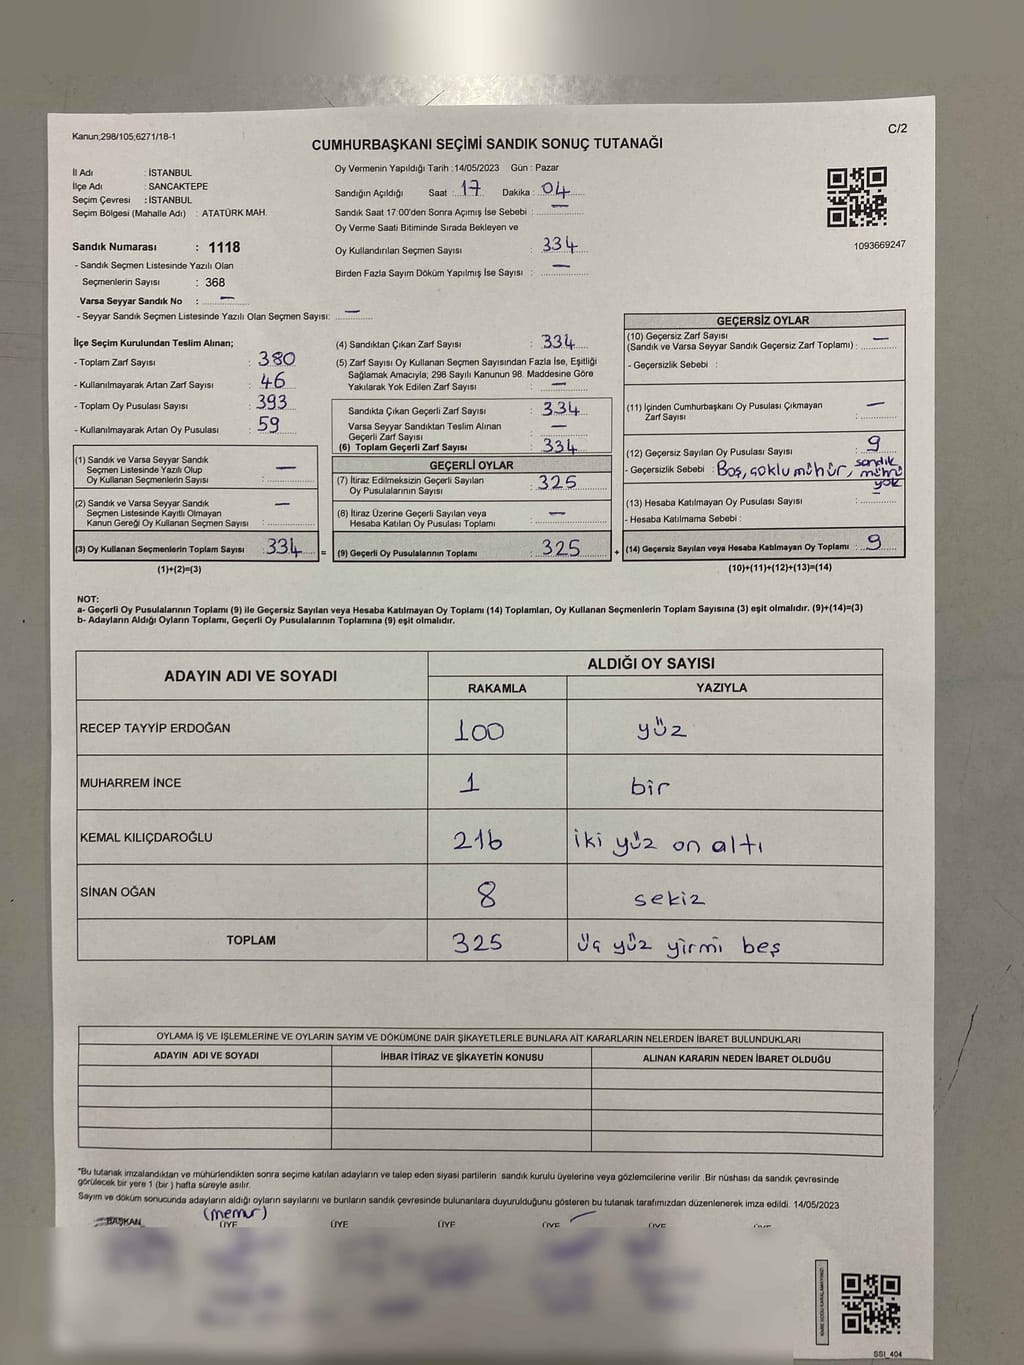 Kanun;298/105;6271/18-1
C/2
CUMHURBAŞKANI SEÇİMİ SANDIK SONUÇ TUTANAĞI
İl Adı : İSTANBUL
İlçe Adı : SANCAKTEPE
Seçim Çevresi : İSTANBUL
Seçim Bölgesi (Mahalle Adı) : ATATÜRK MAH.
Sandık Numarası : 1118
- Sandık Seçmen Listesinde Yazılı Olan
Seçmenlerin Sayısı : 368
Varsa Seyyar Sandık No : —
- Seyyar Sandık Seçmen Listesinde Yazılı Olan Seçmen Sayısı: —
Oy Vermenin Yapıldığı Tarih :14/05/2023 Gün : Pazar
Sandığın Açıldığı Saat : 17 Dakika : 04
Sandık Saat 17:00'den Sonra Açımış İse Sebebi : —
Oy Verme Saati Bitiminde Sırada Bekleyen ve
Oy Kullandırılan Seçmen Sayısı : 334
Birden Fazla Sayım Döküm Yapılmış İse Sayısı : —
1093669247
İlçe Seçim Kurulundan Teslim Alınan;
- Toplam Zarf Sayısı : 380
- Kullanılmayarak Artan Zarf Sayısı : 46
- Toplam Oy Pusulası Sayısı : 393
- Kullanılmayarak Artan Oy Pusulası : 59
(1) Sandık ve Varsa Seyyar Sandık
Seçmen Listesinde Yazılı Olup
Oy Kullanan Seçmenlerin Sayısı : —
(2) Sandık ve Varsa Seyyar Sandık
Seçmen Listesinde Kayıtlı Olmayan
Kanun Gereği Oy Kullanan Seçmen Sayısı : —
(3) Oy Kullanan Seçmenlerin Toplam Sayısı : 334 =
(1)+(2)=(3)
(4) Sandıktan Çıkan Zarf Sayısı : 334
(5) Zarf Sayısı Oy Kullanan Seçmen Sayısından Fazla İse, Eşitliği
Sağlamak Amacıyla; 298 Sayılı Kanunun 98. Maddesine Göre
Yakılarak Yok Edilen Zarf Sayısı : —
Sandıkta Çıkan Geçerli Zarf Sayısı : 334
Varsa Seyyar Sandıktan Teslim Alınan
Geçerli Zarf Sayısı : —
(6) Toplam Geçerli Zarf Sayısı : 334
GEÇERLİ OYLAR
(7) İtiraz Edilmeksizin Geçerli Sayılan
Oy Pusulalarının Sayısı : 325
(8) İtiraz Üzerine Geçerli Sayılan veya
Hesaba Katılan Oy Pusulası Toplamı : —
(9) Geçerli Oy Pusulalarının Toplamı : 325 +
GEÇERSİZ OYLAR
(10) Geçersiz Zarf Sayısı
(Sandık ve Varsa Seyyar Sandık Geçersiz Zarf Toplamı) : —
- Geçersizlik Sebebi :
(11) İçinden Cumhurbaşkanı Oy Pusulası Çıkmayan
Zarf Sayısı : —
(12) Geçersiz Sayılan Oy Pusulası Sayısı : 9
- Geçersizlik Sebebi : Boş, çoklu mühür, sandık
mührü
yok
(13) Hesaba Katılmayan Oy Pusulası Sayısı : —
- Hesaba Katılmama Sebebi :
(14) Geçersiz Sayılan veya Hesaba Katılmayan Oy Toplamı : 9
(10)+(11)+(12)+(13)=(14)
NOT:
a- Geçerli Oy Pusulalarının Toplamı (9) ile Geçersiz Sayılan veya Hesaba Katılmayan Oy Toplamı (14) Toplamları, Oy Kullanan Seçmenlerin Toplam Sayısına (3) eşit olmalıdır. (9)+(14)=(3)
b- Adayların Aldığı Oyların Toplamı, Geçerli Oy Pusulalarının Toplamına (9) eşit olmalıdır.
ADAYIN ADI VE SOYADI ALDIĞI OY SAYISI
RAKAMLA YAZIYLA
RECEP TAYYİP ERDOĞAN 100 yüz
MUHARREM İNCE 1 bir
KEMAL KILIÇDAROĞLU 216 iki yüz on altı
SİNAN OĞAN 8 sekiz
TOPLAM 325 üç yüz yirmi beş
OYLAMA İŞ VE İŞLEMLERİNE VE OYLARIN SAYIM VE DÖKÜMÜNE DAİR ŞİKAYETLERLE BUNLARA AİT KARARLARIN NELERDEN İBARET BULUNDUKLARI
ADAYIN ADI VE SOYADI İHBAR İTİRAZ VE ŞİKAYETİN KONUSU ALINAN KARARIN NEDEN İBARET OLDUĞU
"Bu tutanak imzalandıktan ve mühürlendikten sonra seçime katılan adayların ve talep eden siyasi partilerin sandık kurulu üyelerine veya gözlemcilerine verilir .Bir nüshası da sandık çevresinde
görülecek bir yere 1 (bir ) hafta süreyle asılır.
Sayım ve döküm sonucunda adayların aldığı oyların sayılarını ve bunların sandık çevresinde bulunanlara duyurulduğunu gösteren bu tutanak tarafımızdan düzenlenerek imza edildi. 14/05/2023
(memur)
BAŞKAN ÜYE ÜYE ÜYE ÜYE ÜYE ÜYE
SSI_404